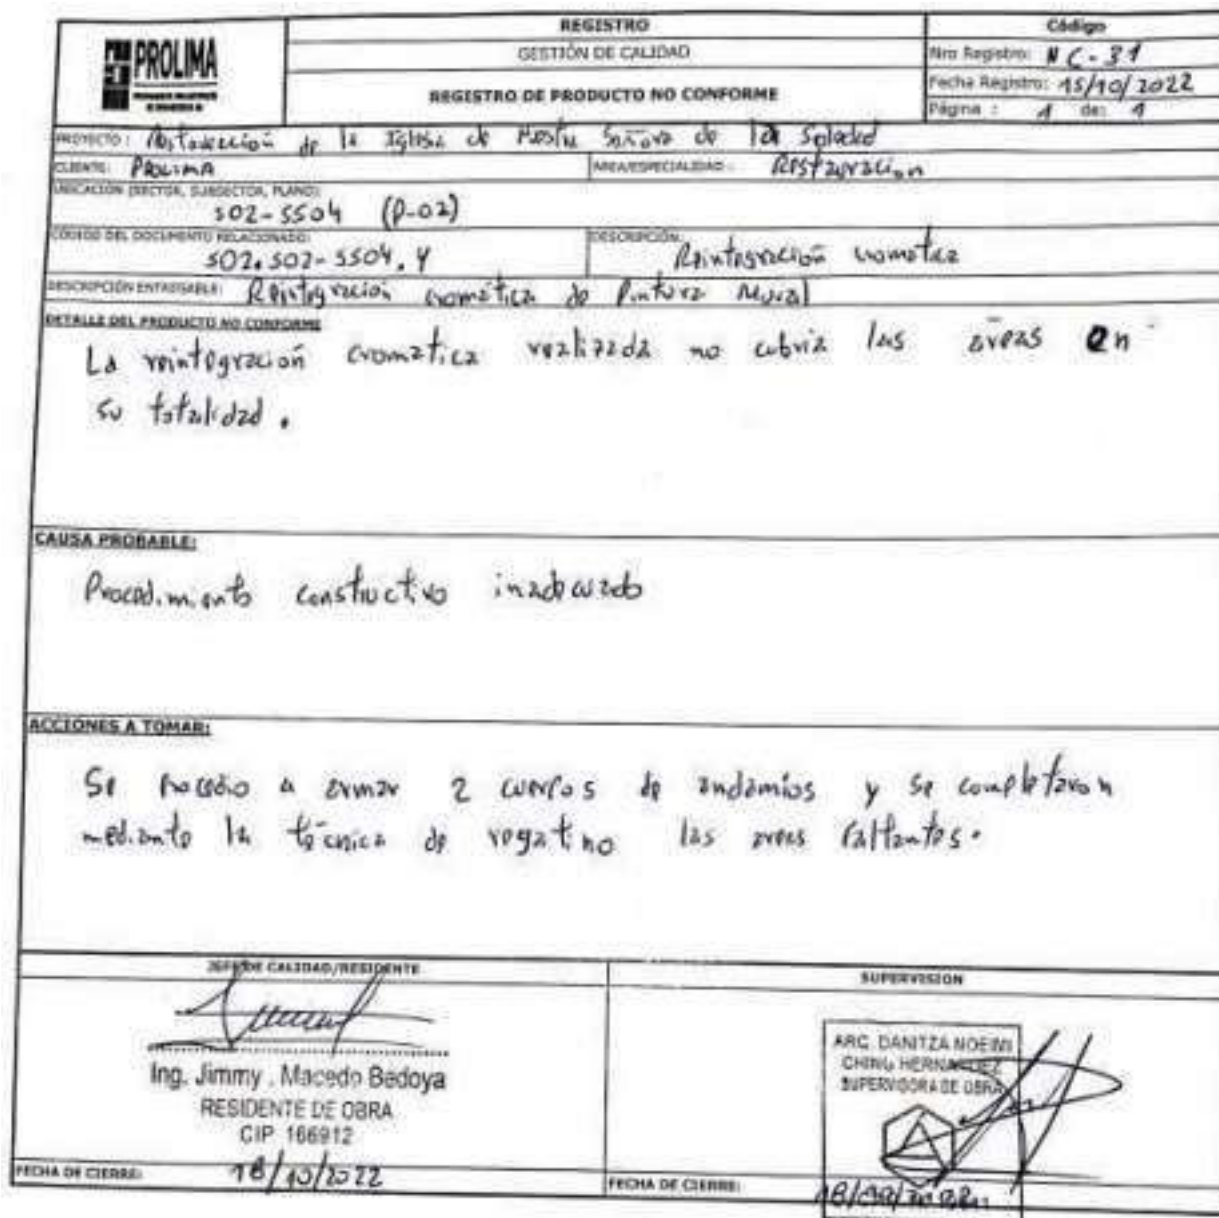 PROLIMA
REGISTRO
GESTIÓN DE CALIDAD
REGISTRO DE PRODUCTO NO CONFORME
Código
Nro Registro: NC-31
Fecha Registro: 15/10/2022
Página : 1 de: 1
PROYECTO: de la Iglesia de Nuestra Señora de la Soledad
CLIENTE: PROLIMA
AREA/ESPECIALIDAD: Restauracion
UBICACIÓN (SECTOR, SUBSECTOR, PLANO):
S02-SS04 (P-02)
CÓDIGO DEL DOCUMENTO RELACIONADO:
S02.S02-SS04.4
DESCRIPCIÓN:
Reintegración cromatica
DESCRIPCIÓN ENTREGABLE: Reintegración cromática de Pintura Mural
DETALLE DEL PRODUCTO NO CONFORME
La reintegración cromatica realizada no cubria las áreas en
su totalidad.
CAUSA PROBABLE:
Procedimiento constructivo inadecuado
ACCIONES A TOMAR:
Se procedio a armar 2 cuerpos de andamios y se completaron
mediante la técnica de regatino las areas faltantes.
JEFE DE CALIDAD/RESIDENTE
SUPERVISION
Ing. Jimmy . Macedo Bedoya
RESIDENTE DE OBRA
CIP 166912
ARC. DANITZA NOEMI
CHING HERNANDEZ
SUPERVISORA DE OBRA
FECHA DE CIERRE: 18/10/2022
FECHA DE CIERRE: